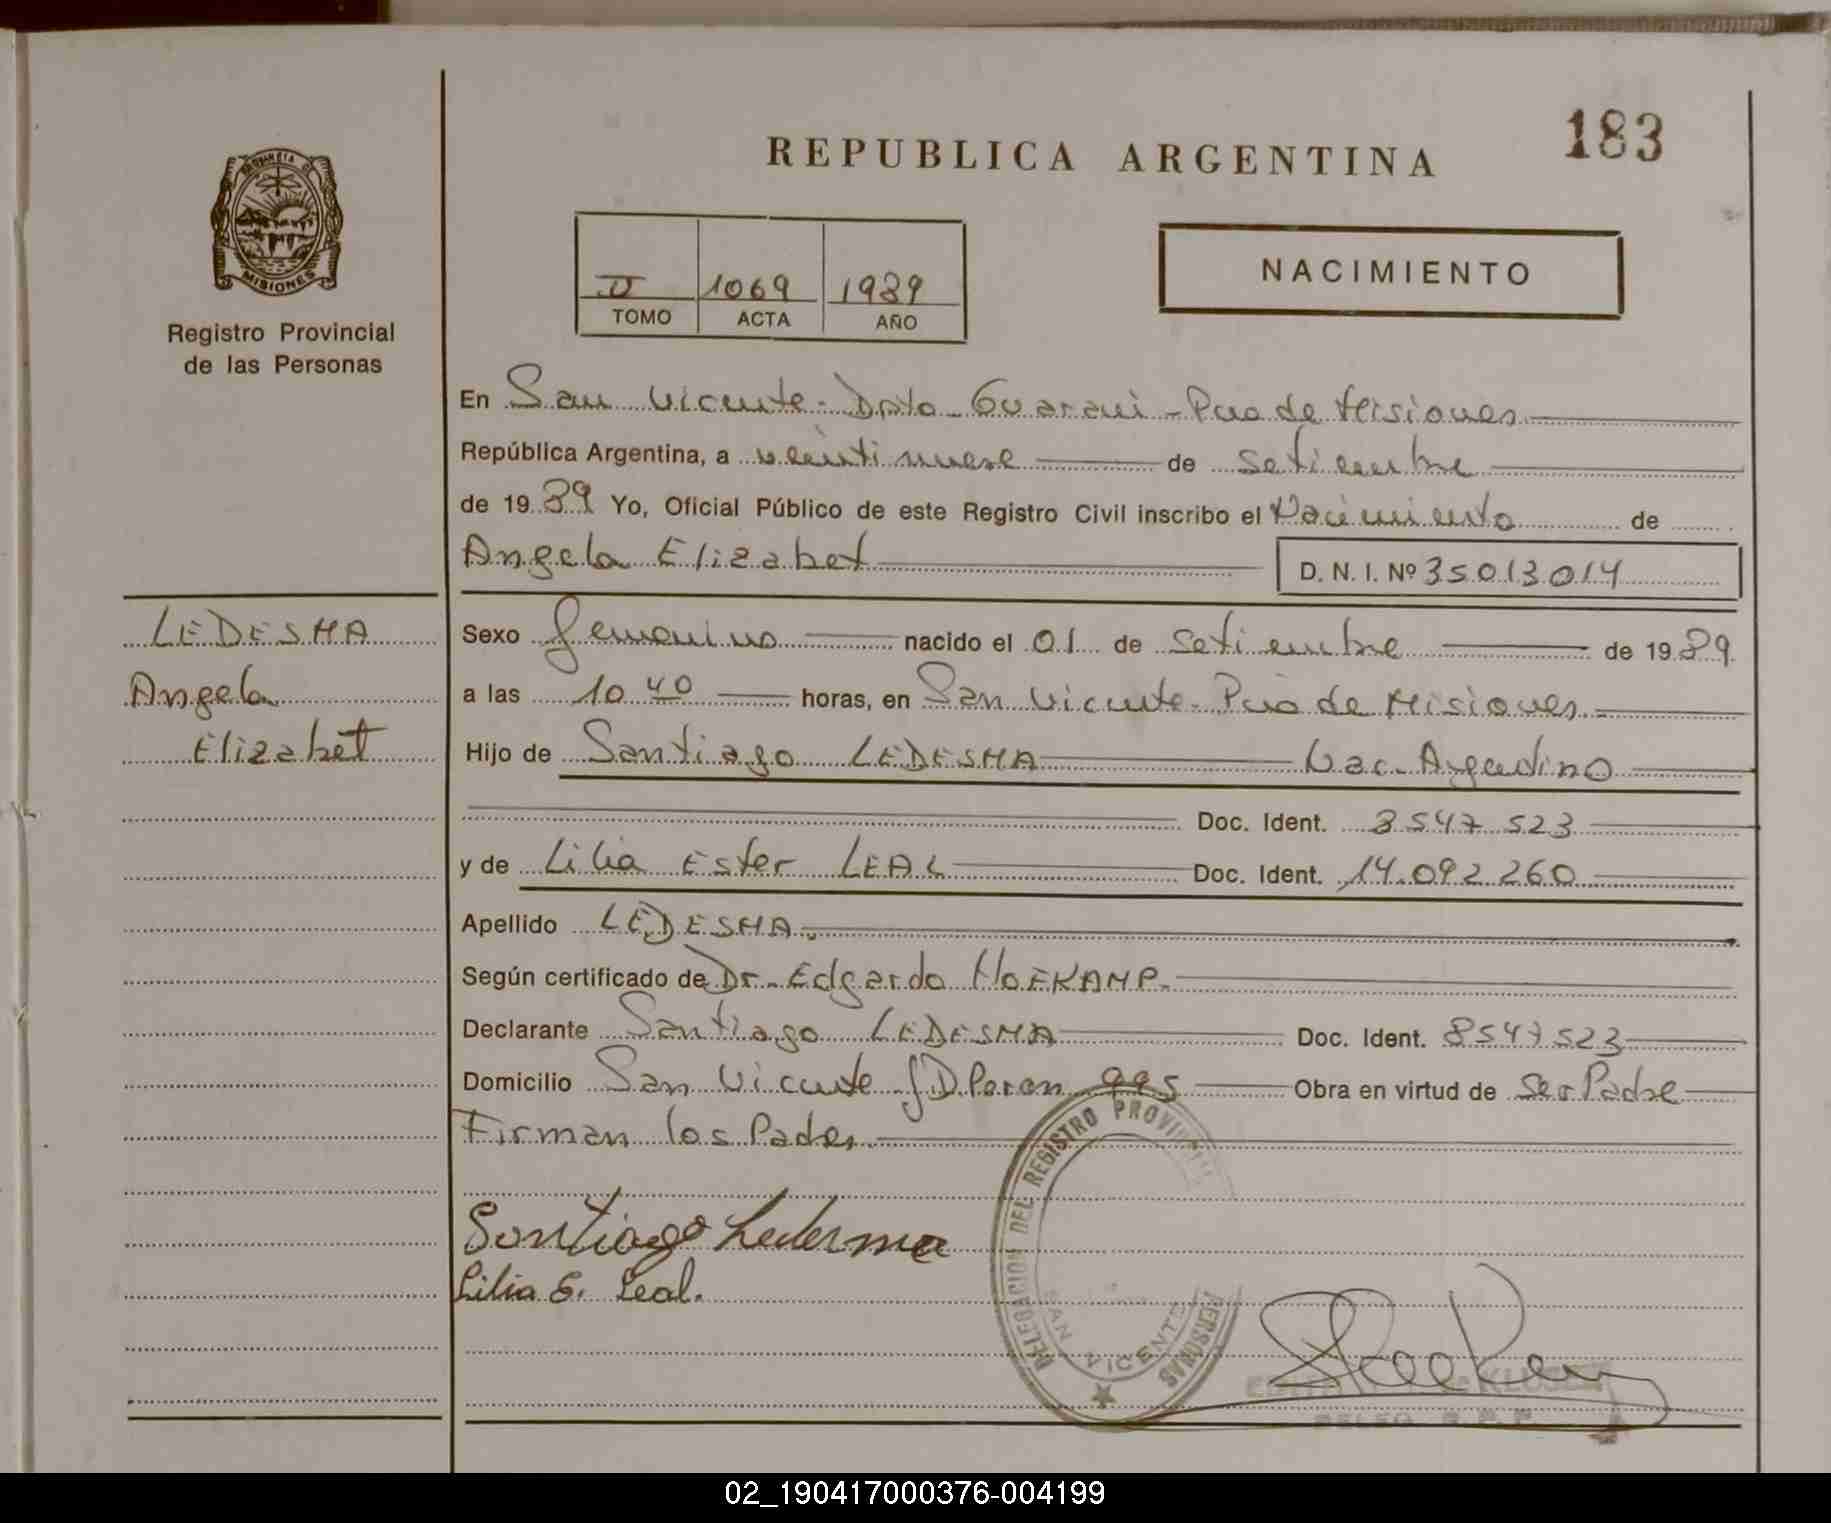 183
REPUBLICA ARGENTINA
PROVINCIA D
MISIONES
Registro Provincial
de las Personas
II 1069 1989
TOMO ACTA AÑO
NACIMIENTO
En San Vicente - Dpto - Guarani - Pcia de Misiones
República Argentina, a veintinueve de Setiembre
de 1989 Yo, Oficial Público de este Registro Civil inscribo el Nacimiento de
Angela Elizabet D. N. I. Nº 35013014
LEDESMA
Angela
Elizabet
Sexo femenino nacido el 01 de Setiembre de 1989
a las 10 40 horas, en San Vicente - Pcia de Misiones
Hijo de Santiago LEDESMA Nac. Argentino
Doc. Ident. 8547523
y de Lilia Ester LEAL Doc. Ident. 14.092.260
Apellido LEDESMA.
Según certificado de Dr. Edgardo HOFKAMP.
Declarante Santiago LEDESMA Doc. Ident. 8547523
Domicilio San Vicente JD Peron 995 Obra en virtud de Ser Padre
Firman los Padres
Santiago Ledesma
Lilia E. Leal.
DELEGACION DEL REGISTRO PROVINCIAL PERSONAS
SAN VICENTE
DELEG. R. P. P.
02_190417000376-004199